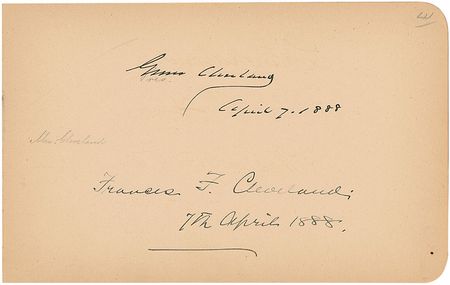 Grover Cleveland
Pres.
April 7. 1888
Mrs. Cleveland
Frances F. Cleveland.
7th April 1888.